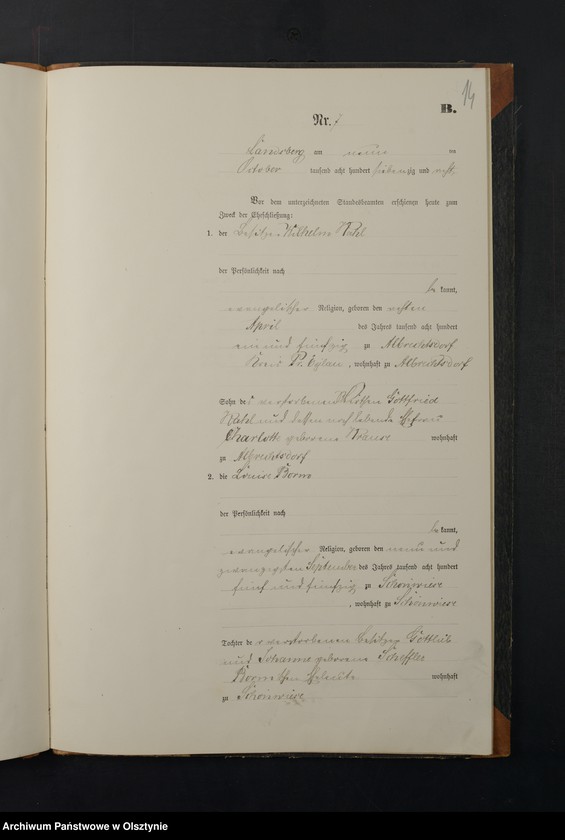 14
B.
Nr. 7
Landsberg am neun ten
October tausend acht hundert siebenzig und acht
Vor dem unterzeichneten Standesbeamten erschienen heute zum
Zweck der Eheschließung:
1. der Besitzer Wilhelm
der Persönlichkeit nach
be kannt,
evangelischer Religion, geboren den achten
April des Jahres tausend acht hundert
ein und fünfzig zu Albrechtsdorf
Kreis Pr. Eylau, wohnhaft zu Albrechtsdorf
Sohn des verstorbenen Gottfried
und dessen noch lebende Ehefrau
Charlotte geborene Krause wohnhaft
zu Albrechtsdorf
2. die Louise Borm
der Persönlichkeit nach
be kannt,
evangelischer Religion, geboren den neun und
zwanzigsten September des Jahres tausend acht hundert
fünf und fünfzig zu Schönwiese
, wohnhaft zu Schönwiese
Tochter der verstorbenen Besitzer Gottlieb
und Johanne geborene Scheffler
Borm Eheleute wohnhaft
zu Schönwiese
Archiwum Państwowe w Olsztynie